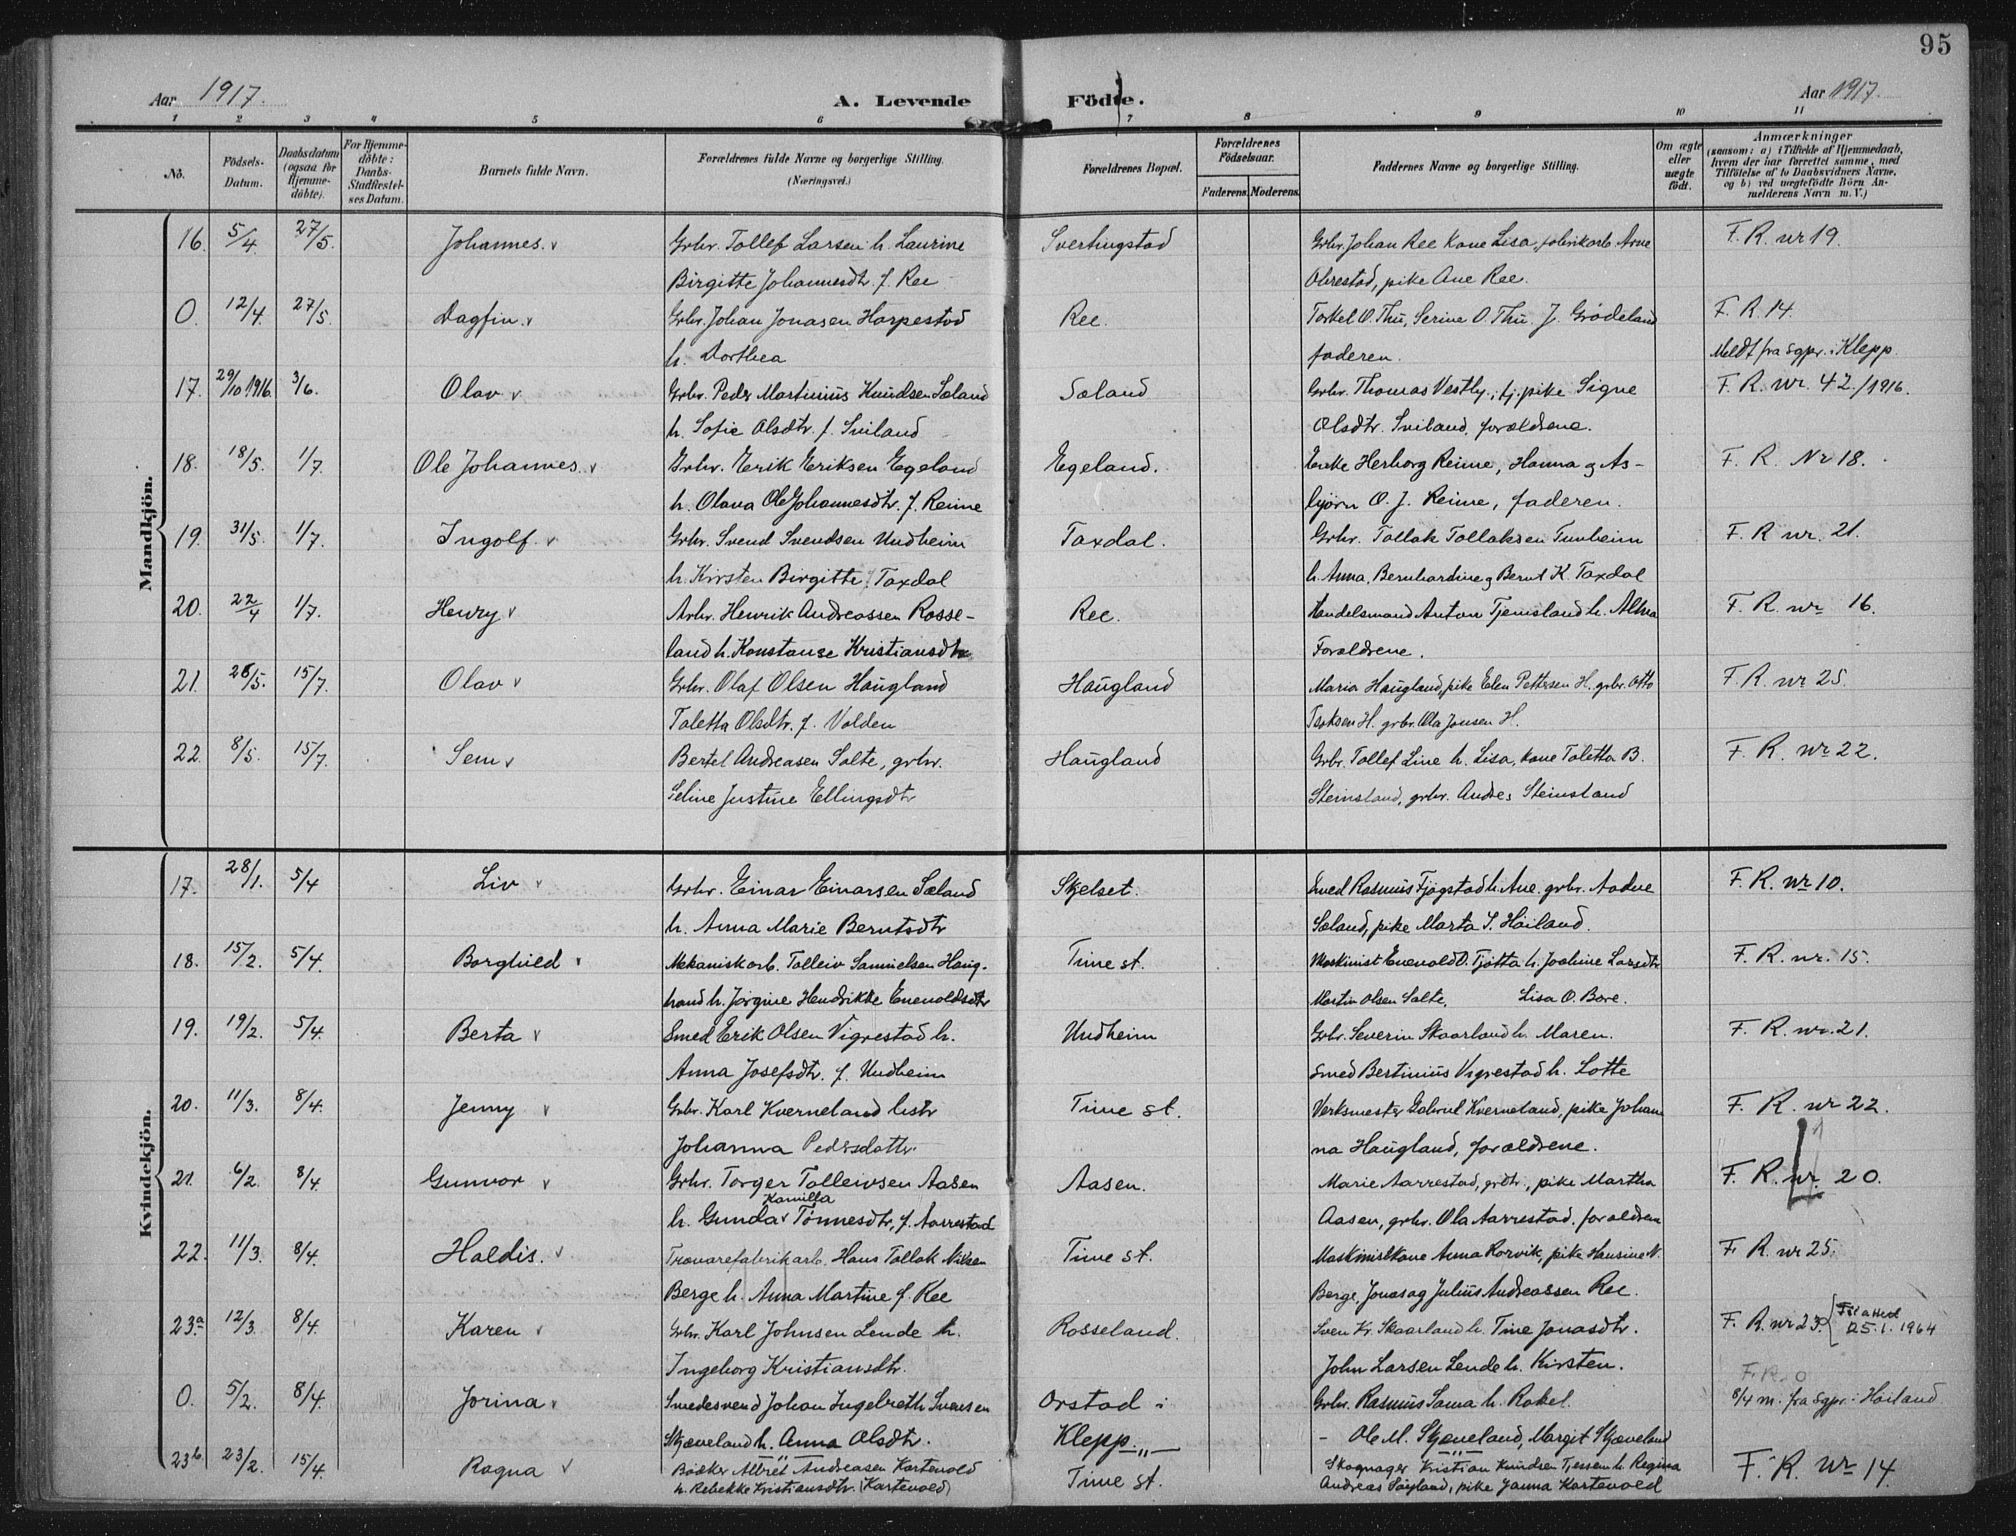 95
Aar 1917. A. Levende Födte. Aar 1917.
1 2 3 4 5 6 7 8 9 10 11
No. Födsels-Datum. Daabsdatum (ogsaa for Hjemme-döbte). For Hjemme-döbte: Daabs-Stadfæstel-ses Datum. Barnets fulde Navn. Forældrenes fulde Navne og borgerlige Stilling. (Næringsvei.) Forældrenes Bopæl. Forældrenes Födselsaar. Faderens. Moderens. Faddernes Navne og borgerlige Stilling. Om ægte eller uægte födt. Anmærkninger (saasom: a) i Tilfælde af Hjemmedaab, hvem der har forrettet samme, med Tilföielse af to Daabsvidners Navne, og b) ved uægtefödte Börn An-melderens Navn m. V.)
Mandkjön.
16. 5/4. 27/5. Johannes. v Grbr. Tollef Larsen h. Laurine Svertingstad Grbr. Johan Ree Kone Lisa, fabrikarb. Arne F. R. nr 19.
Birgitte Johannesdtr f. Ree Obrestad, pike Ane Ree.
0. 12/4. 27/5. Dagfin. v Grbr. Johan Jonasen Harpestad Ree. Torkel O. Thu, Serine O. Thu. J. Grødeland F. R. 14.
h. Dorthea faderen. Meldt fra sgpr. i Klepp.
17. 29/10 1916. 3/6. Olav v Grbr. Peder Martinius Knudsen Sæland Sæland Grbr. Thomas Vestly, tj. pike Signe F. R. nr. 42/1916.
h. Sofie Olsdtr. f. Sviland Olsdtr. Sviland, forældrene.
18. 18/5. 1/7. Ole Johannes. v Grbr. Erik Eriksen Egeland Egeland. Enke Herborg Reime, Hanna og As- F. R. Nr 18.
h. Olava Ole Johannesdtr. f. Reime bjørn O. J. Reime, faderen.
19. 31/5. 1/7. Ingolf. v Grbr. Svend Svendsen Undheim Taxdal. Grbr. Tollak Tollaksen Tunheim F. R nr. 21.
h. Kirsten Birgitte Taxdal h. Anna, Bernhardine og Bernt K. Taxdal
20. 22/4 1/7. Henry v Arbr. Henrik Andreassen Rosse- Ree. Handelsmand Anton Tjemsland h. Alma F. R. nr 16.
land h. Konstanse Kristiansdtr Forældrene.
21. 26/5. 15/7. Olav v Grbr. Olaf Olsen Haugland Haugland Maria Haugland, pike Elen Pettersen H. grbr. Otto F. R. nr 25.
Taletta Olsdtr. f. Volden Torksen H. grbr. Ola Jonsen H.
22. 8/5. 15/7. Sem v Bertel Andreasen Salte, grbr. Haugland Grbr. Tollef Line h. Lisa, kone Taletta B. F. R. nr 22.
Seline Justine Ellingsdtr Steinsland, grbr. Andres Steinsland
Kvindekjön.
17. 28/1. 5/4 Liv v Grbr. Einar Einarsen Sæland Skjelset. Smed Rasmus Fjogstad h. Ane. grbr. Aadne F. R. nr 10.
h. Anna Marie Berntsdtr Sæland, pike Marta S. Høiland.
18. 15/2. 5/4. Borghild v Mekaniskarb. Tolleiv Samuelsen Haug- Time st. Maskinist Enevold O. Tjøtta h. Joahine Larsdtr F. R. nr. 15.
land h. Jørgine Hendrikke Enevoldsdtr Martin Olsen Salte, Lisa O. Bore.
19. 19/2. 5/4. Berta v Smed Erik Olsen Vigrestad h. Undheim Grbr. Severin Skaarland h. Maren. F. R. nr. 21.
Anna Josefsdtr. f. Undheim Smed Bertinius Vigrestad h. Lotte
20. 11/3. 8/4. Jenny v Grbr. Karl Kverneland hstr Time st. Verksmester Gabriel Kverneland, pike Johan F. R. nr 22.
Johanna Pedersdattr. na Haugland, forældrene.
21. 6/2. 8/4. Gunvor v Grbr. Torger Tolleivsen Aasen Aasen. Marie Aarrestad, grdtr., pike Martha F. R. nr. 20.
Kamilla
h. Gunda v Tønnesdtr, f. Aarrestad Aasen, grbr. Ola Aarrestad. forældrene
22. 11/3. 8/4. Haldis. v Trævarefabrikarb. Hans Tollak Nilsen Time st. Maskinistkone Anna Rorvik, pike Hansine N. F. R. nr 25.
Berge h. Anna Martine f. Ree Berge, Jonas og Julius Andreassen Ree.
23a 12/3. 8/4. Karen v Grbr. Karl Johnsen Lende h. Rosseland. Sven Kr. Skaarland h. Tine Jonasdtr. F. R. nr 23. { Fri attest 25.1.1964
Ingeborg Kristiansdtr. John Larsen Lende h. Kirsten. F. R. 0
0. 5/2. 8/4. Jorina v Smedesvend Johan Ingebreth Svensen Orstad i Grbr. Rasmus Sama h. Rakel. 8/4 m. fra sgpr. i Høiland
Skjæveland h. Anna Olsdtr. Klepp - Ole M. Skjæveland, Margit Skjæveland
23b. 23/2. 15/4. Ragna v Bødker Albret Andreasen Kartevold Time st. Skognager Kristian Knudsen Tjessem h. Regina F. R. Nr 14.
h. Rebekke Kristiansdtr. (Kartevold) Andreas Søyland, pike Janna Kartevold